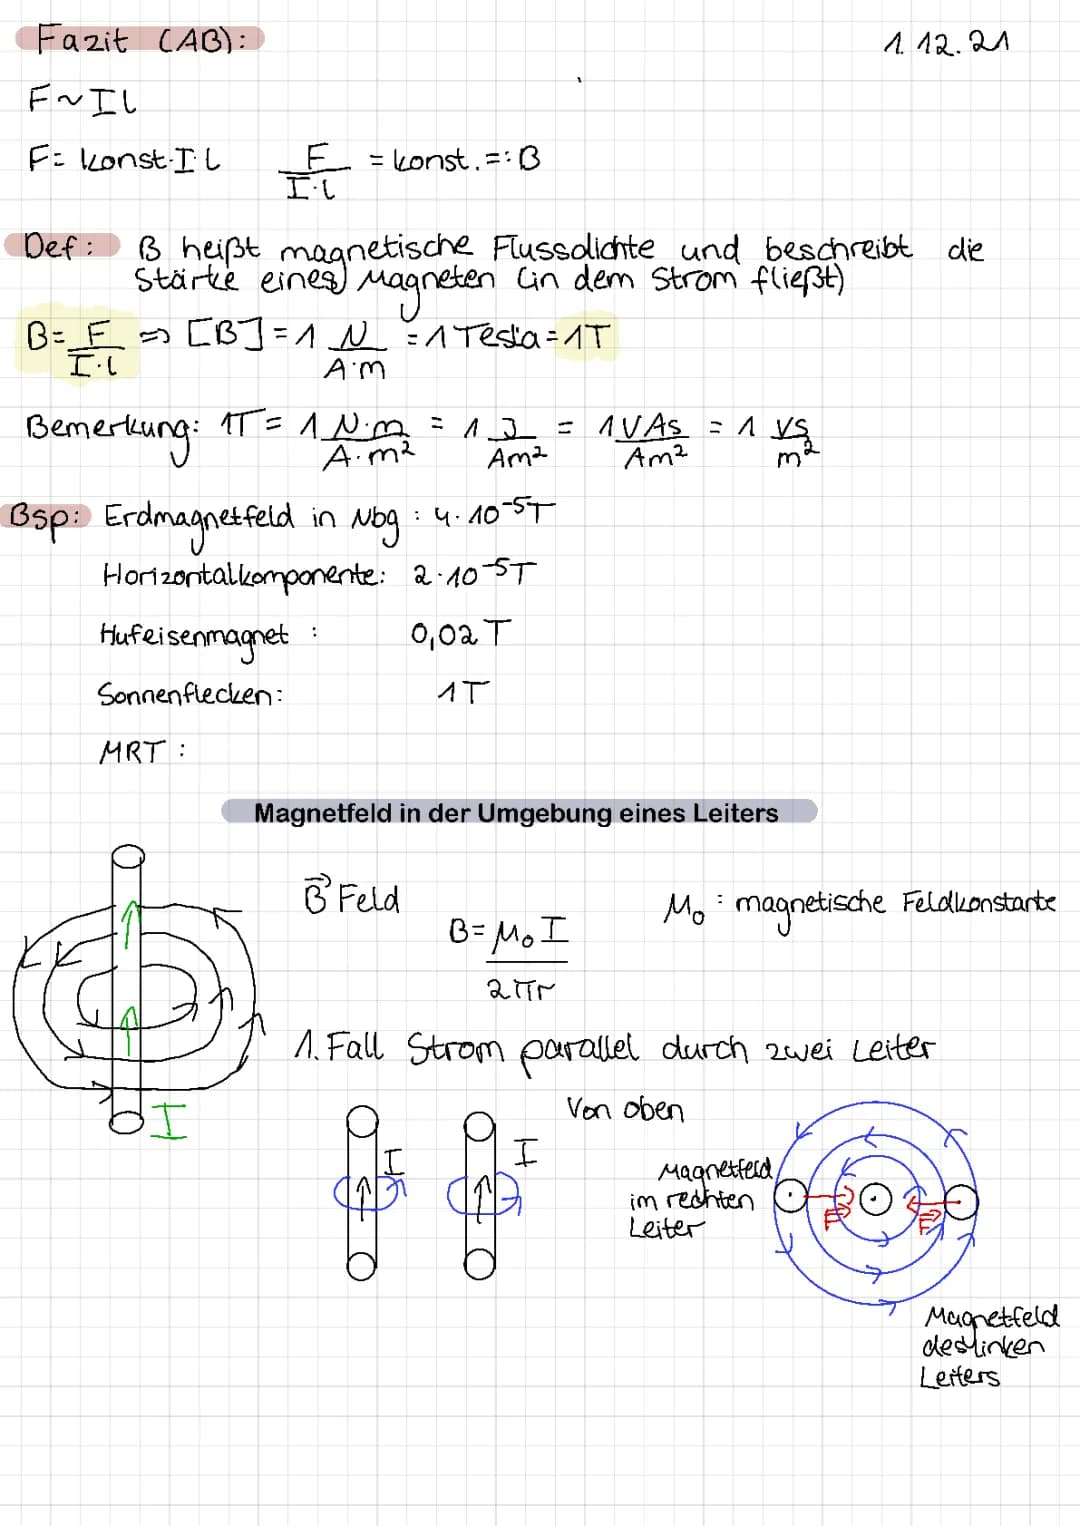 Fazit (AB): 1.12.21
F~Il
F= konst·I·l F/I·l = konst. =: B
Def: B heißt magnetische Flussdichte und beschreibt die
Stärke eines Magneten (in dem Strom fließt)
B= F/I·l ⇒ [B] = 1 N/A·m = 1 Tesla = 1T
Bemerkung: 1T = 1 N·m/A·m² = 1 J/Am² = 1VAs/Am² = 1 Vs/m²
Bsp: Erdmagnetfeld in Nbg : 4·10⁻⁵T
Horizontalkomponente: 2·10⁻⁵T
Hufeisenmagnet : 0,02 T
Sonnenflecken: 1T
MRT :
Magnetfeld in der Umgebung eines Leiters
B⃗ Feld
B= M₀I/2πr
M₀ : magnetische Feldkonstante
I
1. Fall Strom parallel durch zwei Leiter
I
I
Von oben
Magnetfeld
im rechten
Leiter
F
F
Magnetfeld
des linken
Leiters